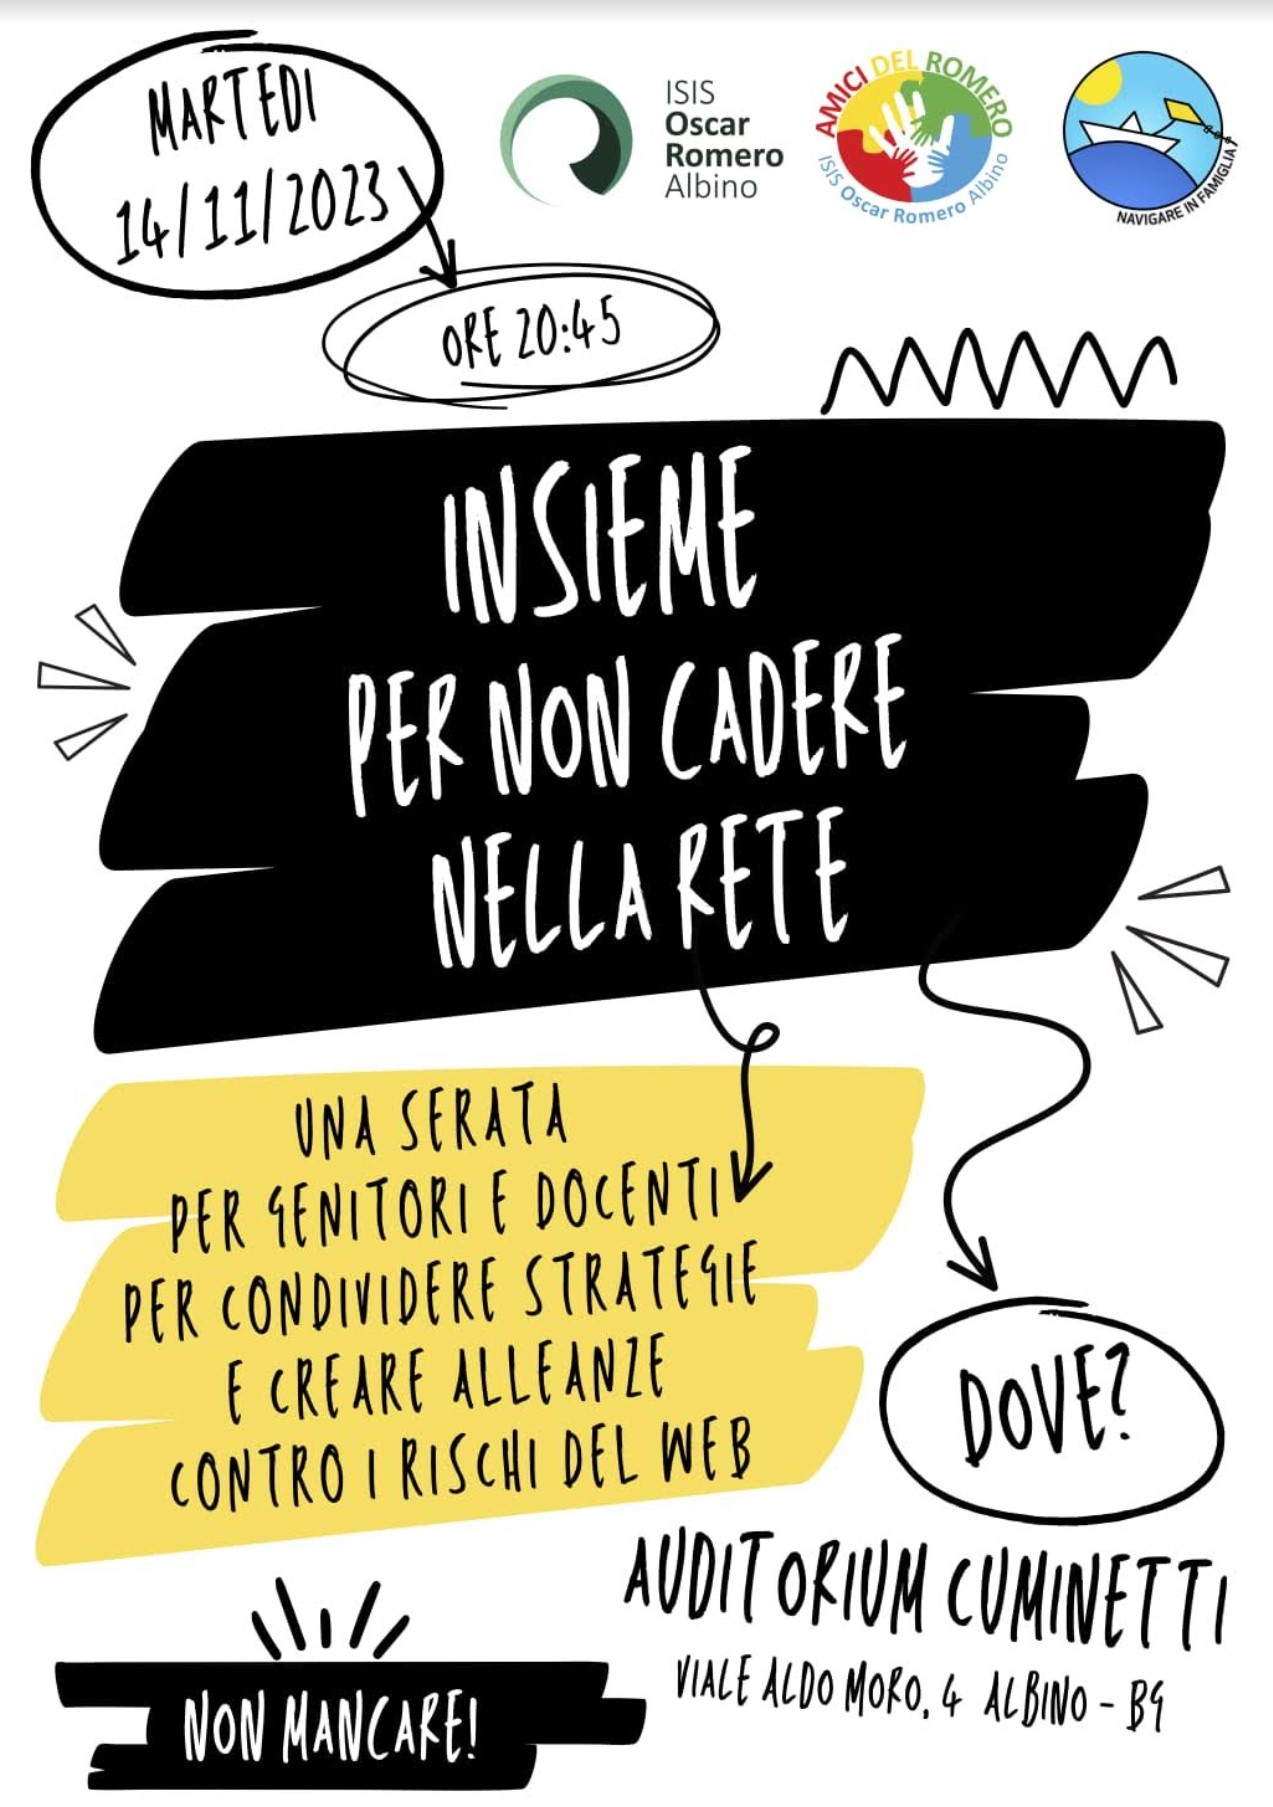 MARTEDI
14/11/2023
ORE 20:45
ISIS
Oscar
Romero
Albino
AMICI DEL ROMERO
ISIS Oscar Romero Albino
NAVIGARE IN FAMIGLIA
INSIEME
PER NON CADERE
NELLA RETE
UNA SERATA
PER GENITORI E DOCENTI
PER CONDIVIDERE STRATEGIE
E CREARE ALLEANZE
CONTRO I RISCHI DEL WEB
DOVE?
AUDITORIUM CUMINETTI
VIALE ALDO MORO, 4 ALBINO - BG
NON MANCARE!